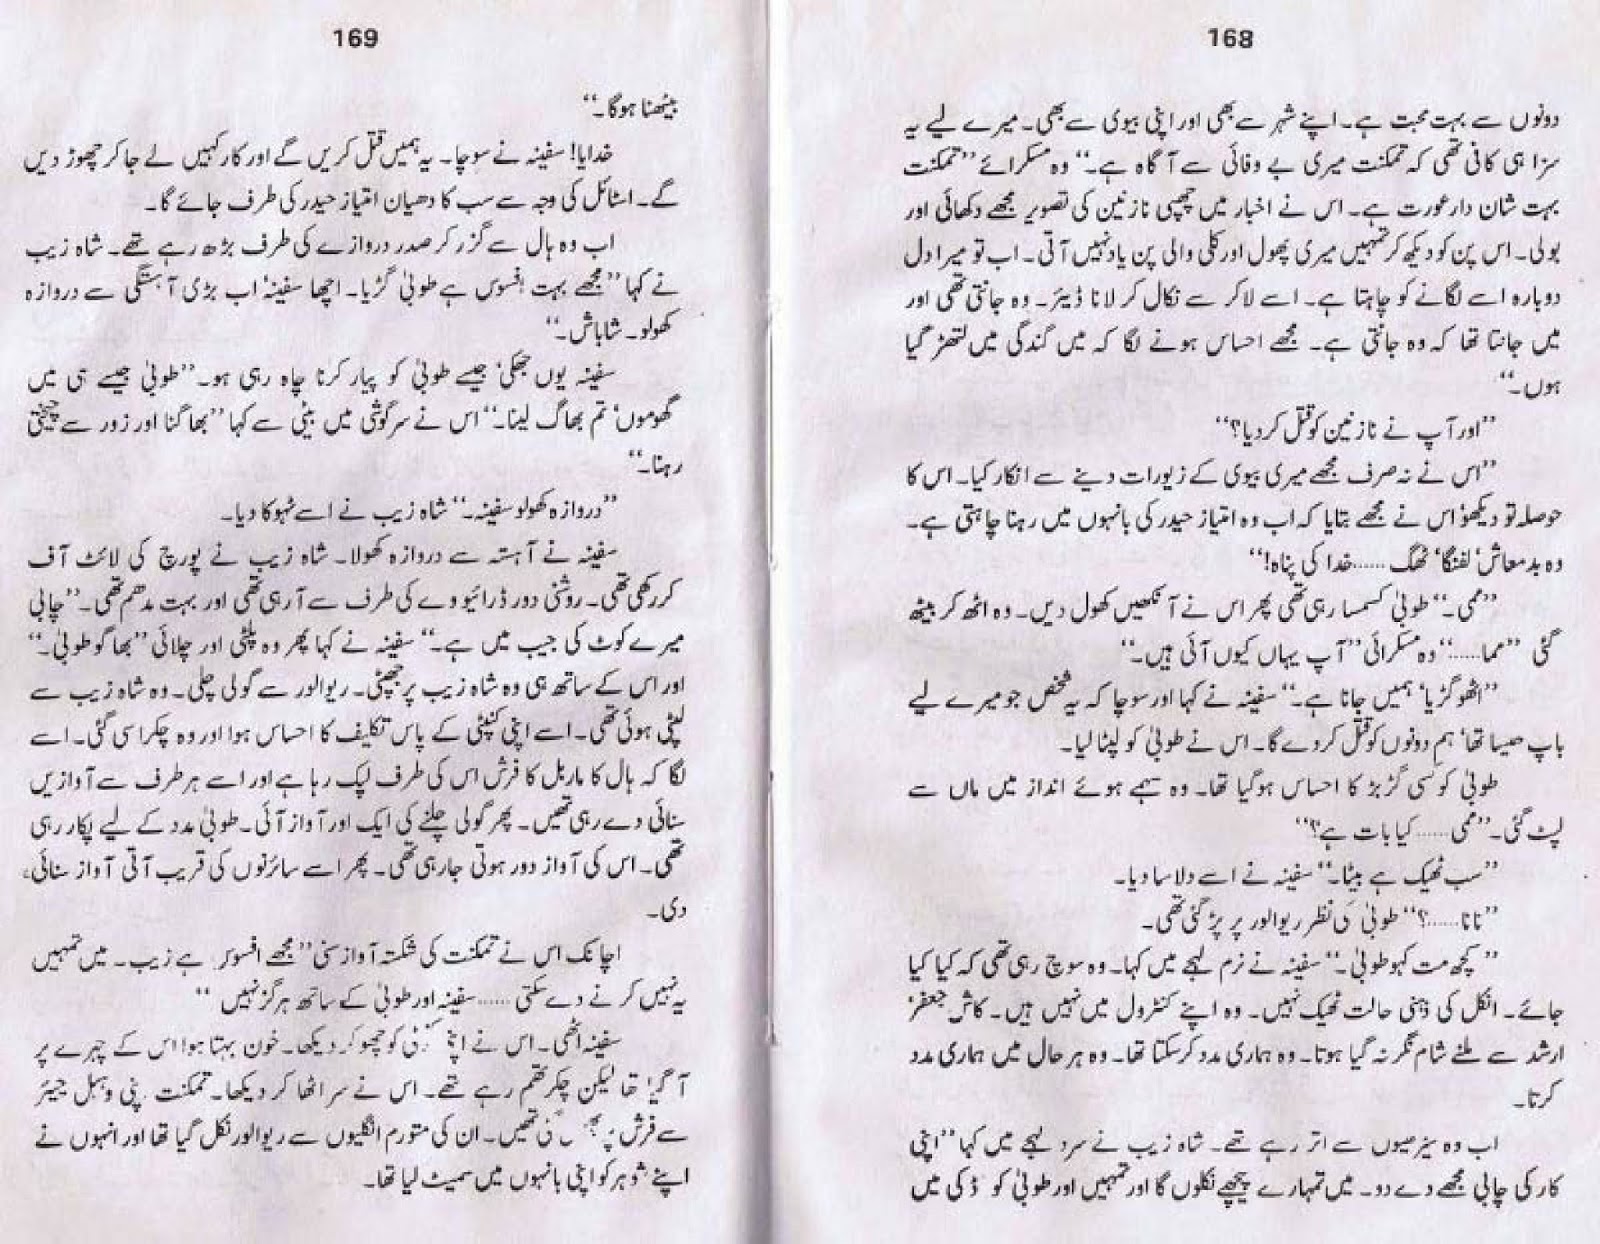 168
دونوں سے بہت محبت ہے۔ اپنے شہر سے بھی اور اپنی بیوی سے بھی۔ میرے لیے یہ
سزا ہی کافی تھی کہ تمکنت میری بے وفائی سے آگاہ ہے۔‘‘ وہ مسکرائے ’’تمکنت
بہت شان دار عورت ہے۔ اس نے اخبار میں چھپی نازنین کی تصویر مجھے دکھائی اور
بولی۔ اس پن کو دیکھ کر تمہیں میری پھول اور کلی والی پن یاد نہیں آتی۔ اب تو میرا دل
دوبارہ اسے لگانے کو چاہتا ہے۔ اسے لاکر سے نکال کر لانا ڈیئر۔ وہ جانتی تھی اور
میں جانتا تھا کہ وہ جانتی ہے۔ مجھے احساس ہونے لگا کہ میں گندگی میں لتھڑ گیا
ہوں۔‘‘
’’اور آپ نے نازنین کو قتل کر دیا؟‘‘
’’اس نے نہ صرف مجھے میری بیوی کے زیورات دینے سے انکار کیا۔ اس کا
حوصلہ تو دیکھو‘ اس نے مجھے بتایا کہ اب وہ امتیاز حیدر کی بانہوں میں رہنا چاہتی ہے۔
وہ بدمعاش‘ لفنگا‘ ٹھگ ...... خدا کی پناہ!‘‘
’’ممی۔‘‘ طوبیٰ کسمسا رہی تھی پھر اس نے آنکھیں کھول دیں۔ وہ اٹھ کر بیٹھ
گئی ’’مما......‘‘ وہ مسکرائی ’’آپ یہاں کیوں آئی ہیں۔‘‘
’’اٹھو گڑیا‘ ہمیں جانا ہے۔‘‘ سفینہ نے کہا اور سوچا کہ یہ شخص جو میرے لیے
باپ جیسا تھا‘ ہم دونوں کو قتل کر دے گا۔ اس نے طوبیٰ کو لپٹا لیا۔
طوبیٰ کو کسی گڑبڑ کا احساس ہو گیا تھا۔ وہ سہمے ہوئے انداز میں ماں سے
لپٹ گئی۔ ’’ممی ...... کیا بات ہے؟‘‘
’’سب ٹھیک ہے بیٹا۔‘‘ سفینہ نے اسے دلاسا دیا۔
’’نانا......؟‘‘ طوبیٰ کی نظر ریوالور پر پڑ گئی تھی۔
’’کچھ مت کہو طوبیٰ۔‘‘ سفینہ نے نرم لہجے میں کہا۔ وہ سوچ رہی تھی کہ کیا کیا
جائے۔ انکل کی ذہنی حالت ٹھیک نہیں۔ وہ اپنے کنٹرول میں نہیں ہیں۔ کاش جعفر‘
ارشد سے ملنے شام نگر نہ گیا ہوتا۔ وہ ہماری مدد کر سکتا تھا۔ وہ ہر حال میں ہماری مدد
کرتا۔
اب وہ سیڑھیوں سے اتر رہے تھے۔ شاہ زیب نے سرد لہجے میں کہا ’’اپنی
کار کی چابی مجھے دے دو۔ میں تمہارے پیچھے نکلوں گا اور تمہیں اور طوبیٰ کو ڈکی میں
169
بیٹھنا ہوگا۔‘‘
خدایا! سفینہ نے سوچا۔ یہ ہمیں قتل کریں گے اور کار کہیں لے جا کر چھوڑ دیں
گے۔ اسٹائل کی وجہ سے سب کا دھیان امتیاز حیدر کی طرف جائے گا۔
اب وہ ہال سے گزر کر صدر دروازے کی طرف بڑھ رہے تھے۔ شاہ زیب
نے کہا ’’مجھے بہت افسوس ہے طوبیٰ گڑیا۔ اچھا سفینہ‘ اب بڑی آہستگی سے دروازہ
کھولو۔ شاباش۔‘‘
سفینہ یوں جھکی‘ جیسے طوبیٰ کو پیار کرنا چاہ رہی ہو۔ ’’طوبیٰ جیسے ہی میں
گھوموں‘ تم بھاگ لینا۔‘‘ اس نے سرگوشی میں بیٹی سے کہا ’’بھاگنا اور زور سے چیختی
رہنا۔‘‘
’’دروازہ کھولو سفینہ۔‘‘ شاہ زیب نے اسے ٹہوکا دیا۔
سفینہ نے آہستہ سے دروازہ کھولا۔ شاہ زیب نے پورچ کی لائٹ آف
کر رکھی تھی۔ روشنی دور ڈرائیو وے کی طرف سے آ رہی تھی اور بہت مدھم تھی۔ ’’چابی
میرے کوٹ کی جیب میں ہے۔‘‘ سفینہ نے کہا پھر وہ پلٹی اور چلائی ’’بھاگو طوبیٰ۔‘‘
اور اس کے ساتھ ہی وہ شاہ زیب پر جھپٹی۔ ریوالور سے گولی چلی۔ وہ شاہ زیب سے
لپٹی ہوئی تھی۔ اسے اپنی کنپٹی کے پاس تکلیف کا احساس ہوا اور وہ چکرا سی گئی۔ اسے
لگا کہ ہال کا ماربل کا فرش اس کی طرف لپک رہا ہے اور اسے ہر طرف سے آوازیں
سنائی دے رہی تھیں۔ پھر گولی چلنے کی ایک اور آواز آئی۔ طوبیٰ مدد کے لیے پکار رہی
تھی۔ اس کی آواز دور ہوتی جا رہی تھی۔ پھر اسے سائرنوں کی قریب آتی آواز سنائی
دی۔
اچانک اس نے تمکنت کی شکستہ آواز سنی ’’مجھے افسوس ہے زیب۔ میں تمہیں
یہ نہیں کرنے دے سکتی ...... سفینہ اور طوبیٰ کے ساتھ ہرگز نہیں ‘‘
سفینہ اٹھی۔ اس نے اپنی کو چھو کر دیکھا۔ خون بہتا ہوا اس کے چہرے پر
آ گیا تھا لیکن چکر تھم رہے تھے۔ اس نے سر اٹھا کر دیکھا۔ تمکنت اپنی وہیل چیئر
سے فرش پر تھیں۔ ان کی متورم انگلیوں سے ریوالور نکل گیا تھا اور انہوں نے
اپنے شوہر کو اپنی بانہوں میں سمیٹ لیا تھا۔